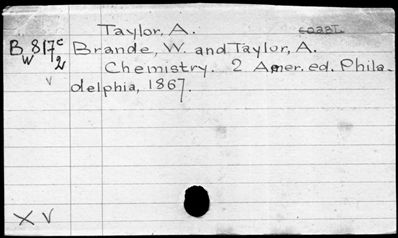 Taylor, A.
B817c Brande, W. and Taylor, A.
W 2
Chemistry. 2 Amer. ed. Phila-
v
delphia, 1867.
X V